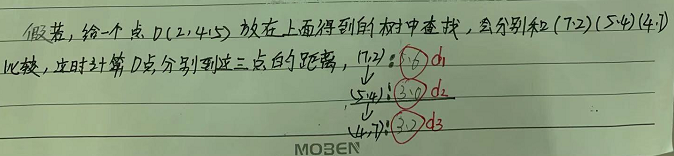 假若,给一个点D(2,4.5)放在上面得到的树中查找,会分别和(7.2)(5.4)(4.7)
比较,这时计算D点分别到这三点的距离,(7.2):3.6 d1
(5.4):3.0 d2
(4.7):3.2 d3
MOBEN